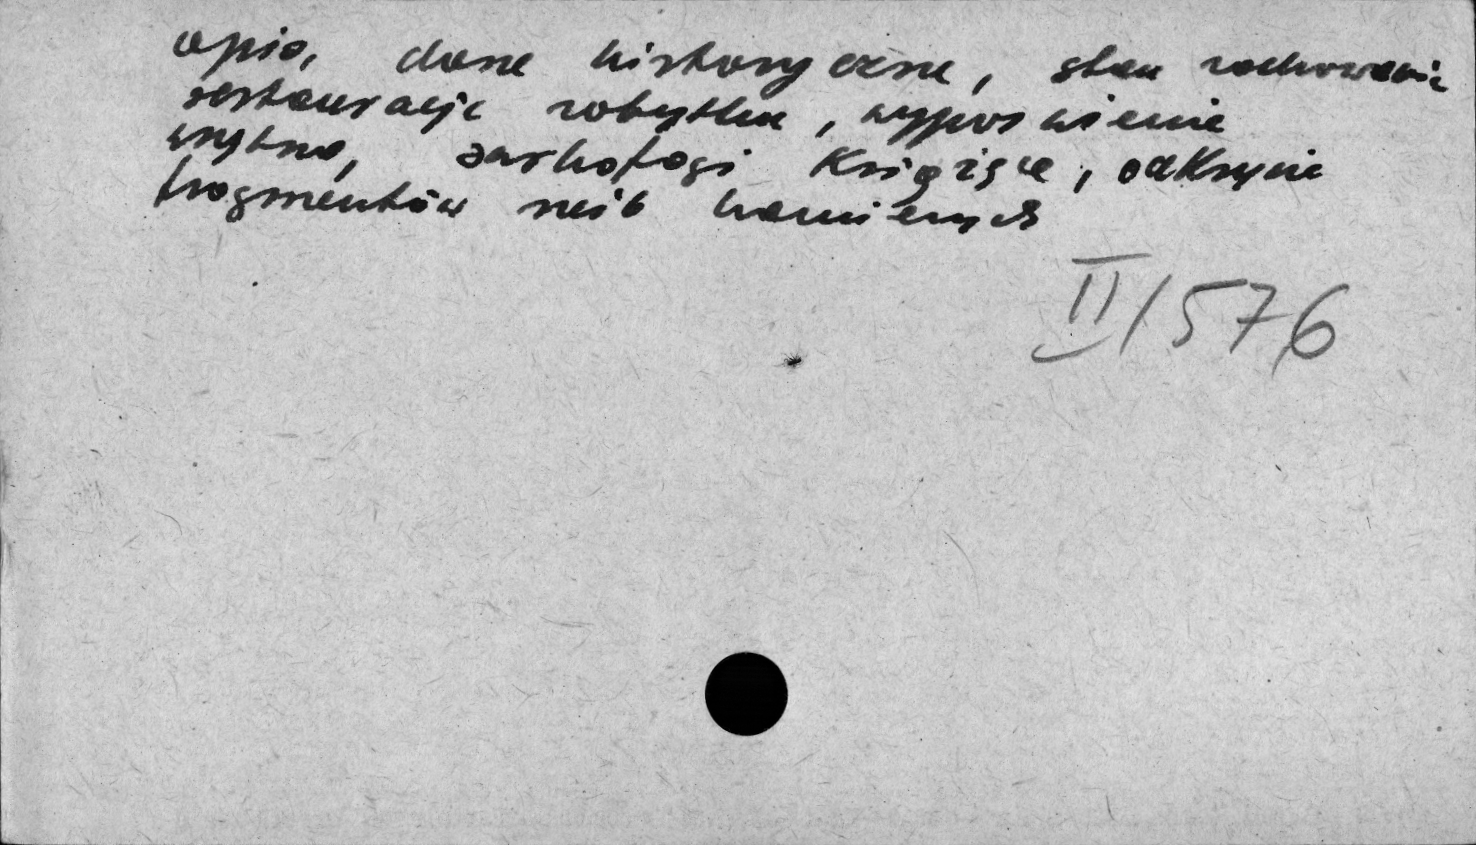 opis, dane historyczne, stan zachowania
restauracje zabytku, wyposażenie
wnętrza, sarkofagi Książące, odkrycie
fragmentów rzeźb kamiennych
II/576